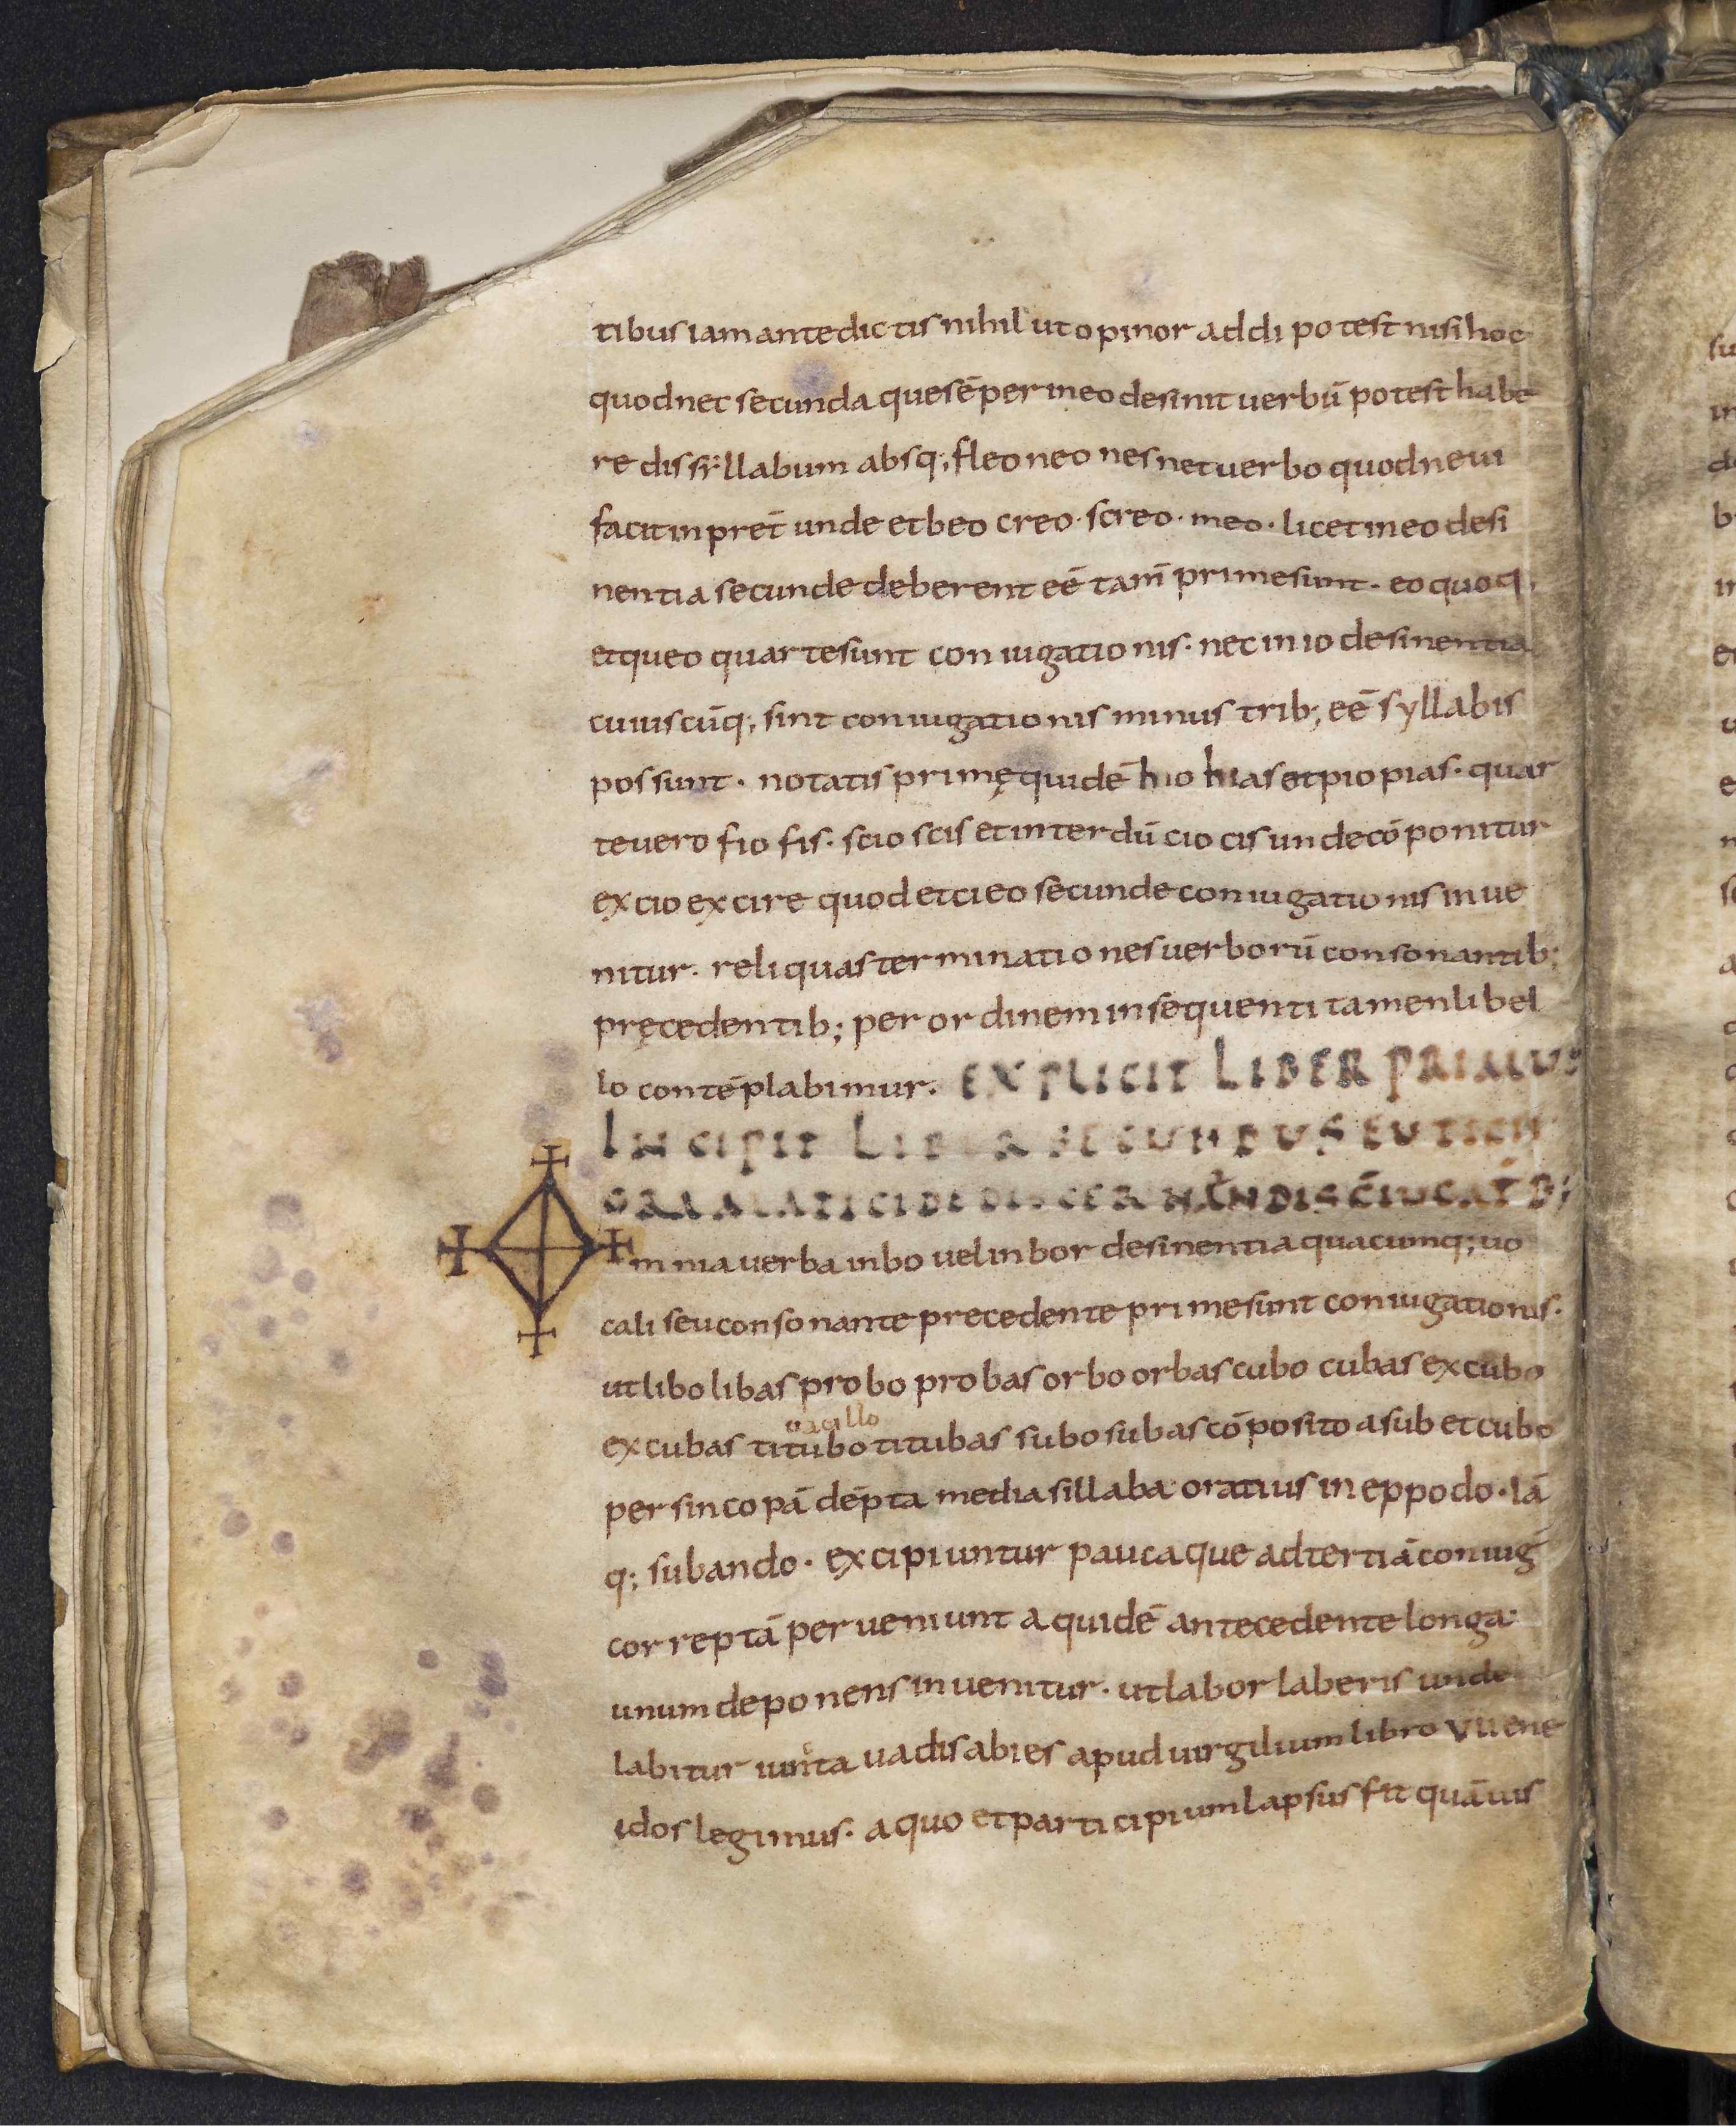 tibus iam ante dictis nihil ut opinor addi potest nisi hoc
quod nec secunda que sēper in eo desinit uerbū potest habe
re dissyllabum absq; fleo neo nes net uerbo quod neui
facit in preт̄ unde et beo creo · screo · meo · licet in eo desi
nentia secunde deberent eē tam̄ prime sunt · eo quoq;
et queo quarte sunt coniugationis · nec in io desinentia
cuiuscūq; sint coniugationis minus trib; eē syllabis
possunt · notatis primę quidē hio hias et pio pias · quar
te uero fio fis · scio scis et interdū cio cis unde cōponitur
excio excire quod et cieo secunde coniugationis inue
nitur · reliquas terminationes uerborū consonantib;
pręcedentib; per ordinem in sequenti tamen libel
lo contēplabimur. EXPLICIT LIBER PRIMUS
INCIPIT LIBER SECUNDUS EUTICII
GRAMMATICI DE DISCERNENDIS C̄IUGAT̄ B;
Omnia uerba in bo uel in bor desinentia quacumq; uo
cali seu consonante precedente prime sunt coniugationis.
ut libo libas probo probas orbo orbas cubo cubas excubo
uacillo
excubas titubo titubas subo subas cōposito a sub et cubo
per sincopā dēpta media sillaba oratius in eppodo · Iā
q; subando · excipiuntur pauca que ad tertiā coniuḡ
correptā perueniunt a quidē antecedente longa
unum deponens inuenitur · ut labor laberis unde
labitur uncta uadis abies apud uirgilium libro VII ene
idos legimus · a quo et participium lapsus fit quāuis
su